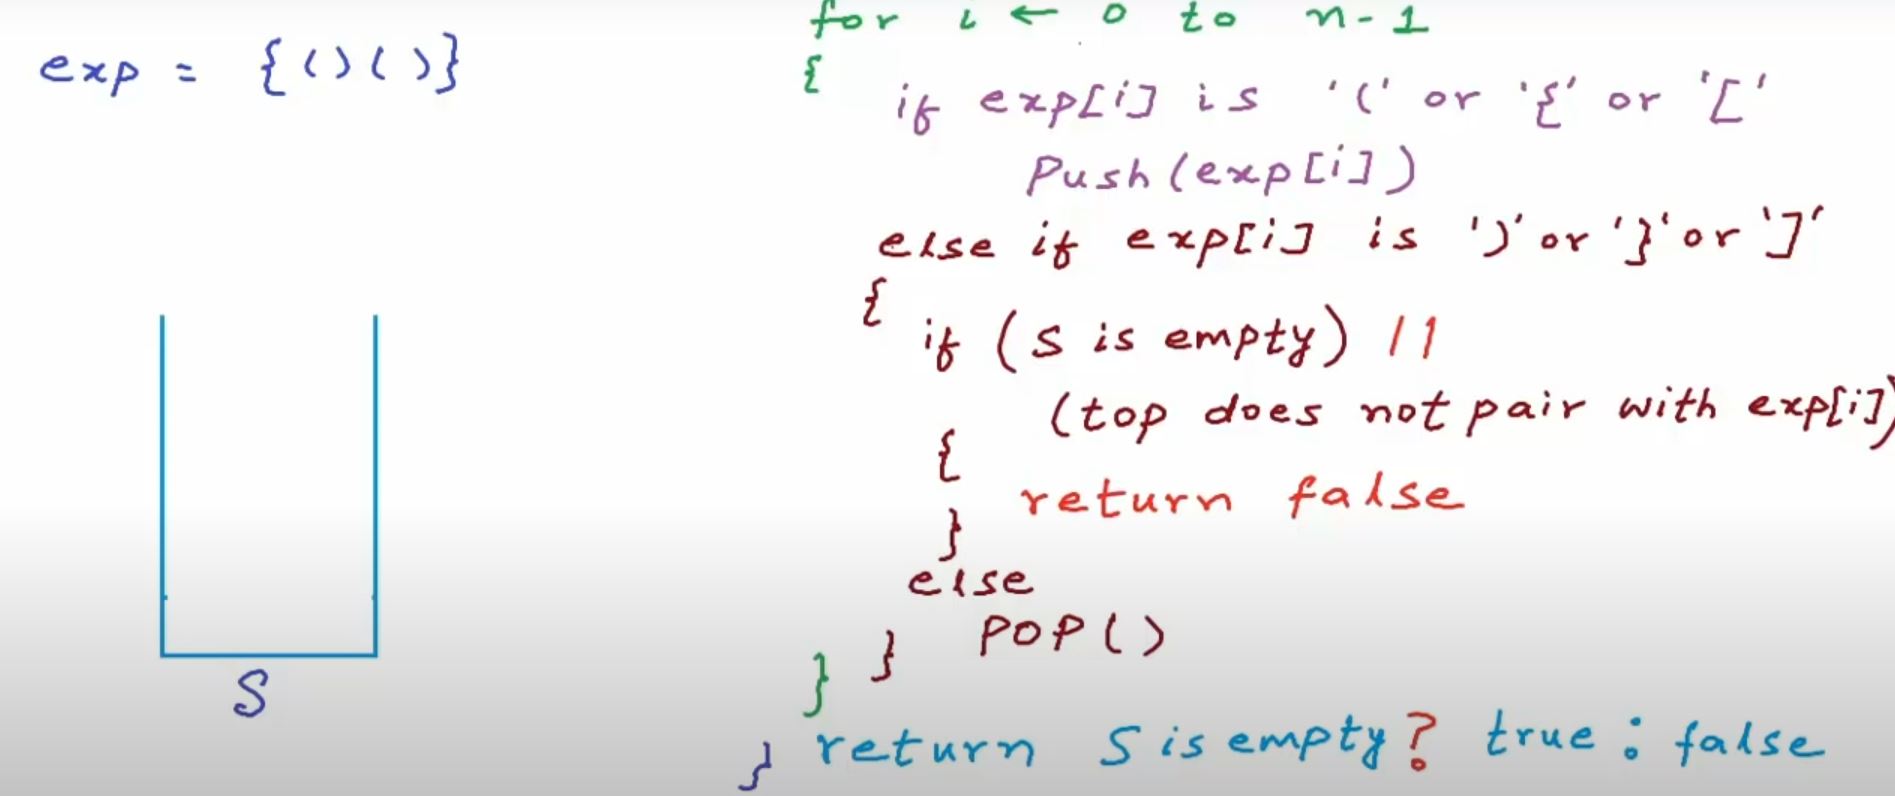 exp = {()()}
for i ← 0 to n-1
{
if exp[i] is '(' or '{' or '['
Push(exp[i])
else if exp[i] is ')' or '}' or ']'
{
if (S is empty) ||
(top does not pair with exp[i])
{
return false
}
else
POP()
}
}
return S is empty? true : false
}
S